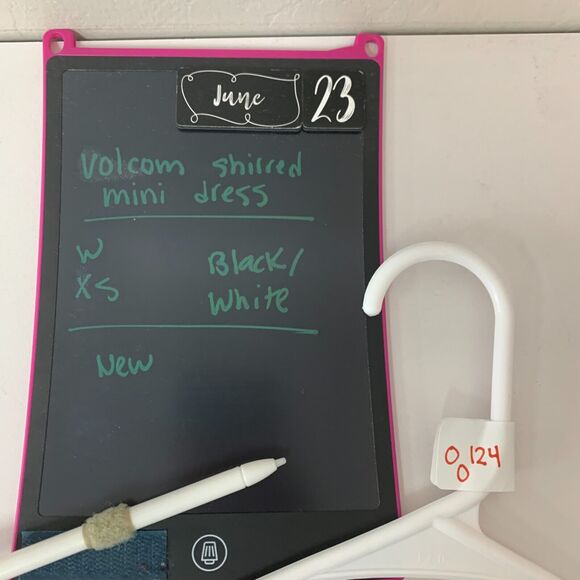 June 23
Volcom shirred
mini dress
W
XS
Black/
White
New